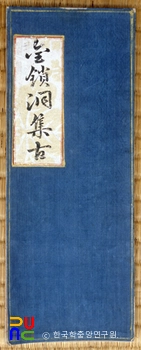 金鎖洞集古
PUNC
© 한국학중앙연구원